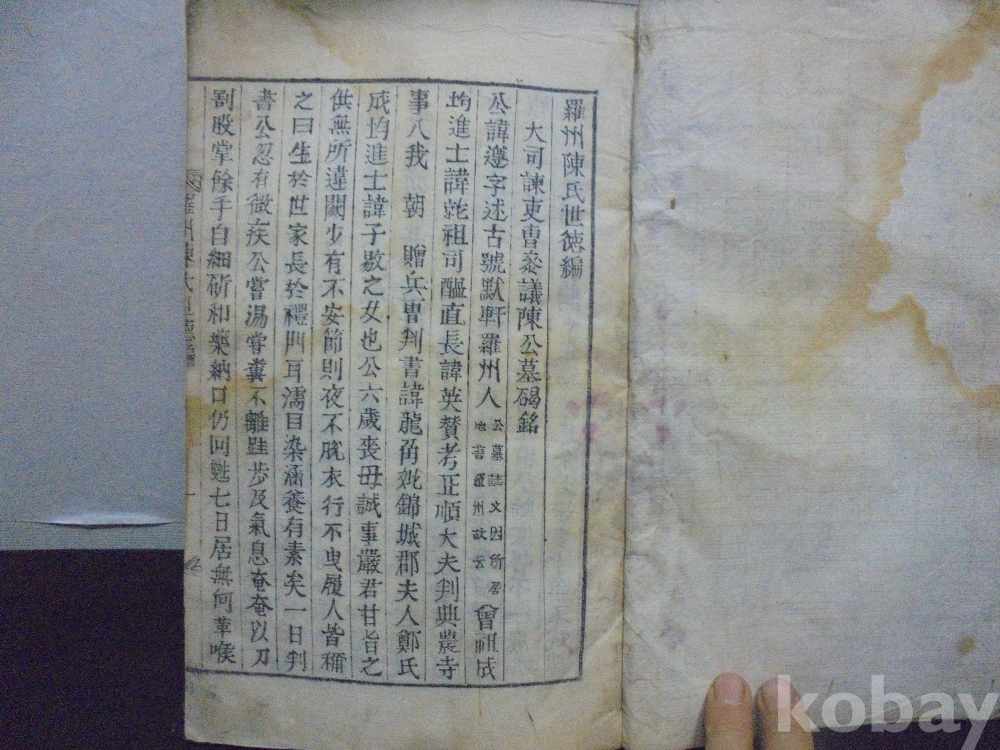 羅州陳氏世德編
大司諫吏曹叅議陳公墓碣銘
公諱遵字述古號默軒羅州人公墓誌文因所居地書羅州故云曾祖成
均進士諱乾祖司醞直長諱英贊考正順大夫判典農寺
事入我 朝 贈兵曹判書諱龍角妣錦城郡夫人鄭氏
成均進士諱子敭之女也公六歲喪母誠事嚴君甘旨之
供無所違闕少有不安節則夜不脫衣行不曳履人皆稱
之曰生於世家長於禮門耳濡目染涵養有素矣一日判
書公忽有微疾公嘗湯甞糞不離跬步及氣息奄奄以刀
割股掌餘手自細斫和藥納口仍回甦七日居無何革喉
羅州陳氏世德編
一
kobay